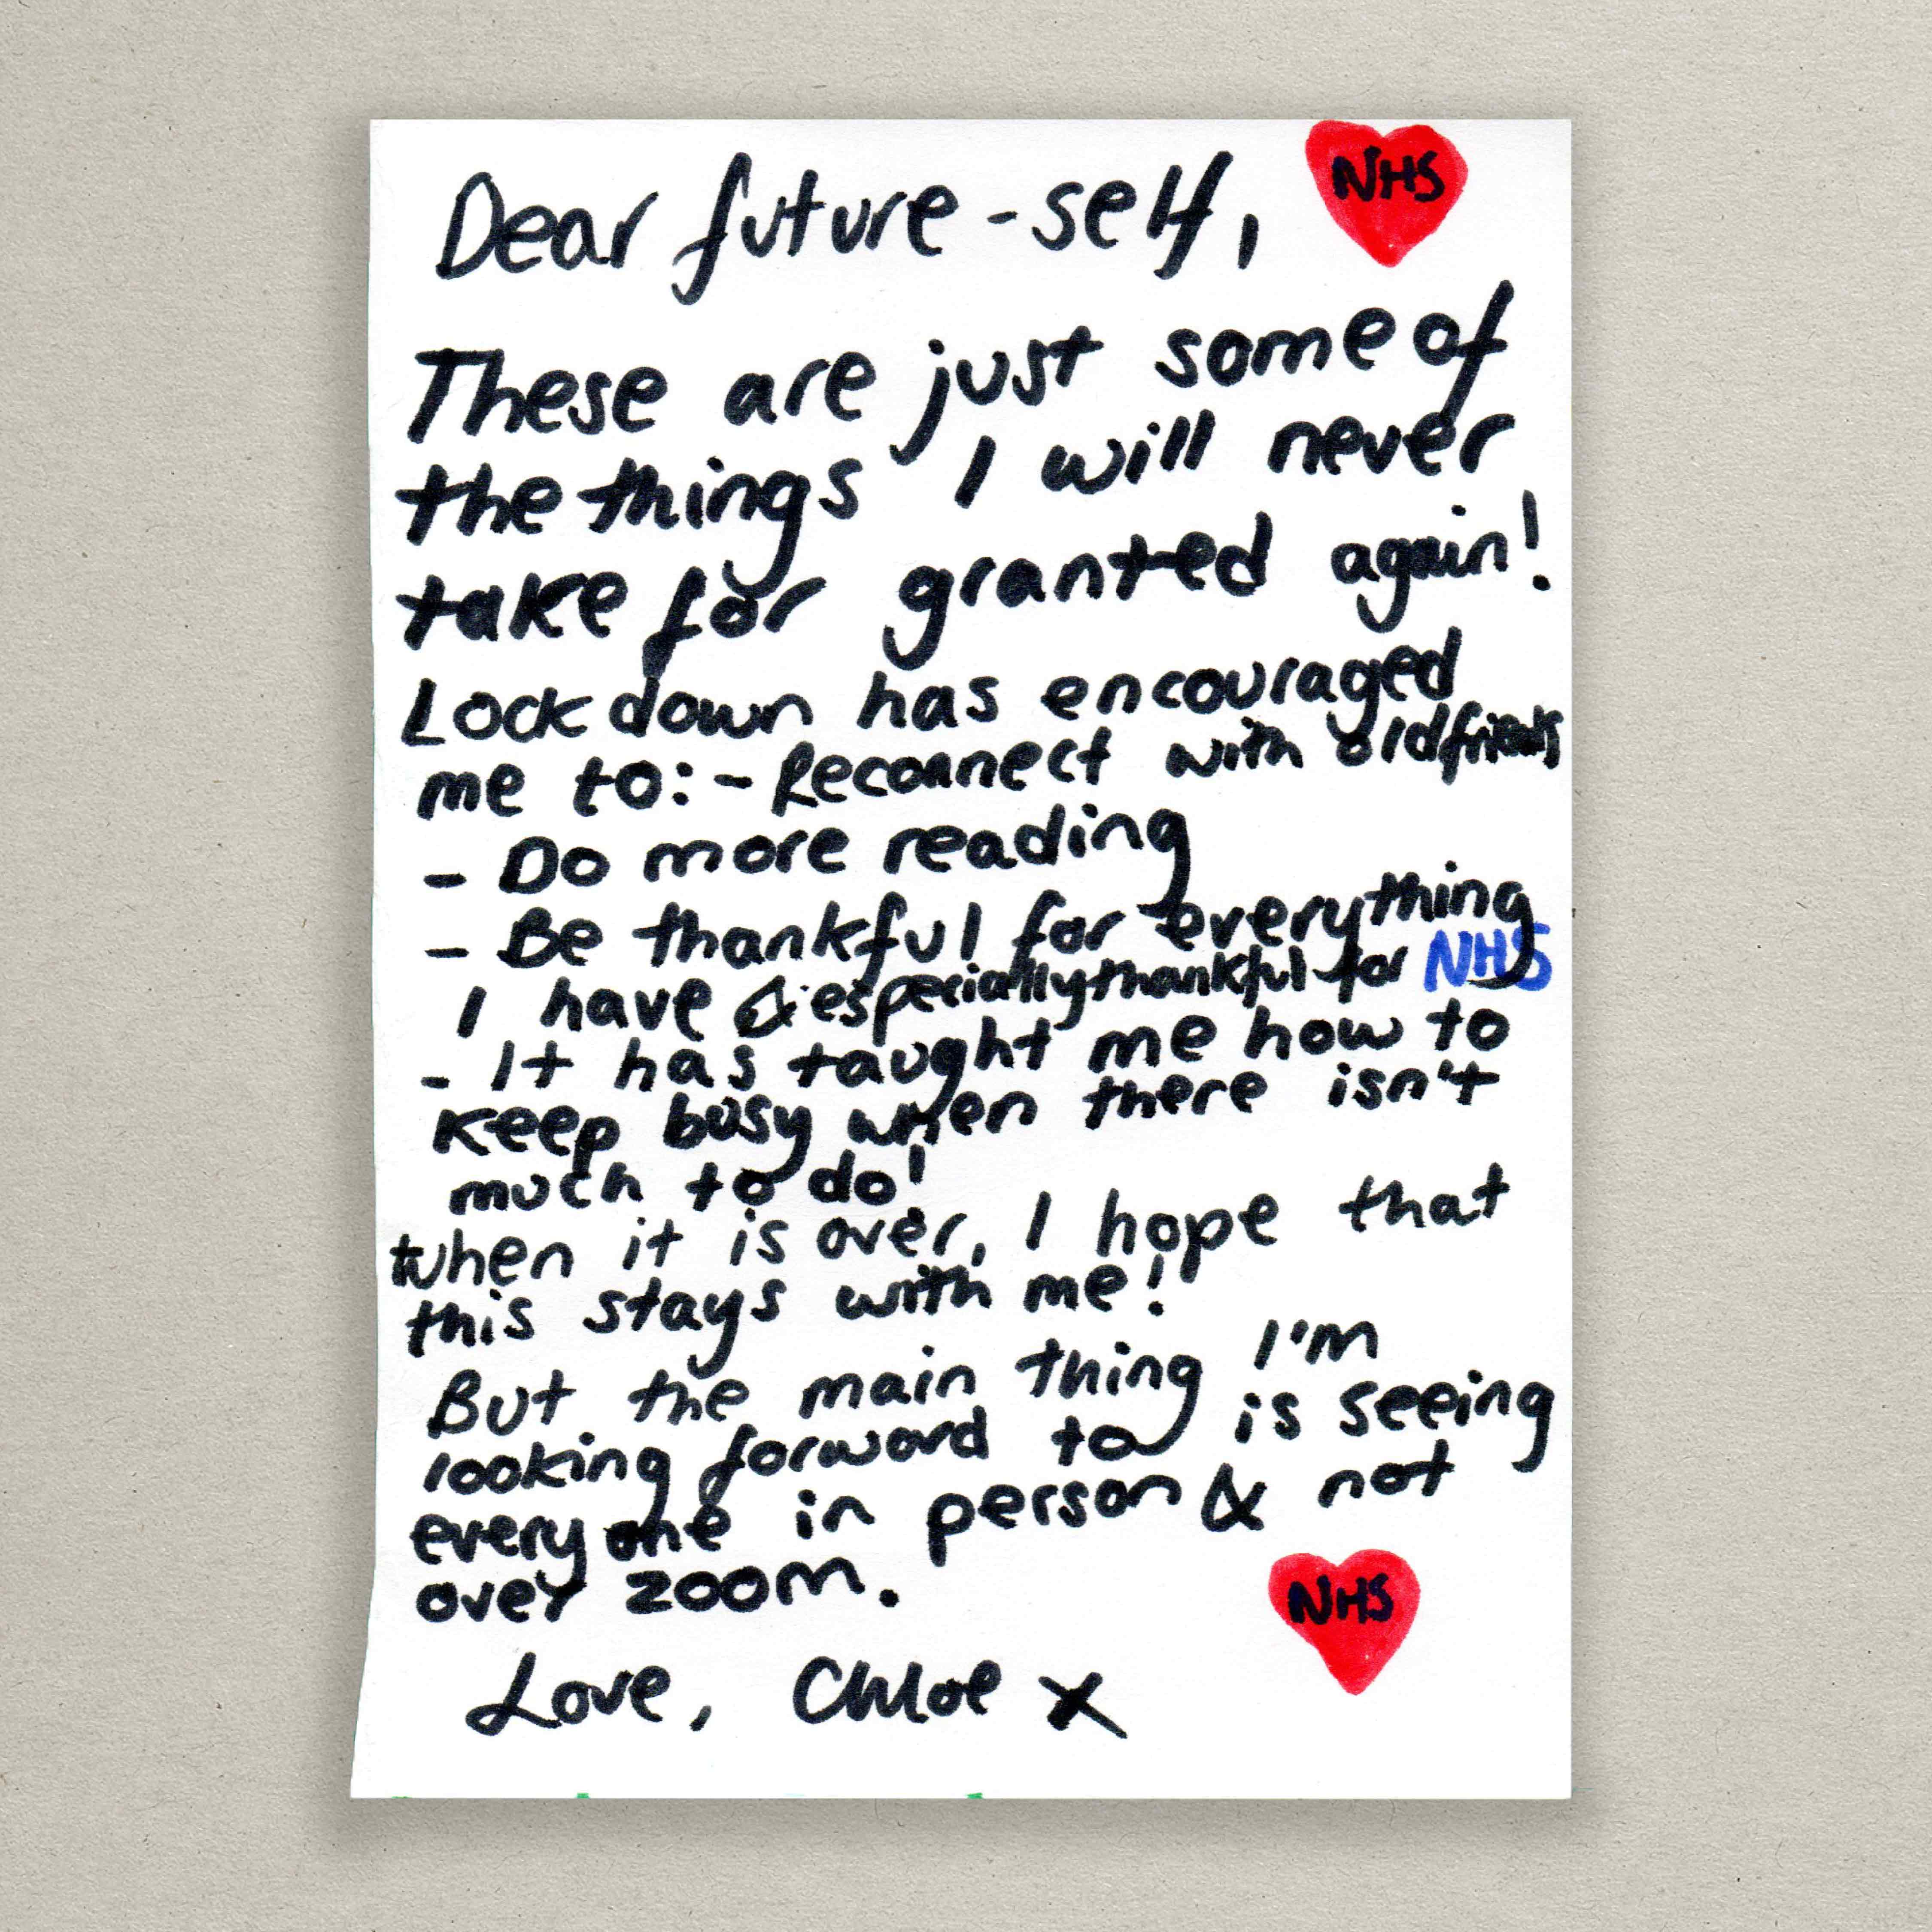 Dear future-self,
NHS
These are just some of
the things I will never
take for granted again!
Lockdown has encouraged
me to:- Reconnect with old friends
- Do more reading
- Be thankful for everything
I have & especially thankful for NHS
- It has taught me how to
keep busy when there isn't
much to do!
When it is over, I hope that
this stays with me!
But the main thing I'm
looking forward to is seeing
everyone in person & not
over zoom.
NHS
Love, Chloe x